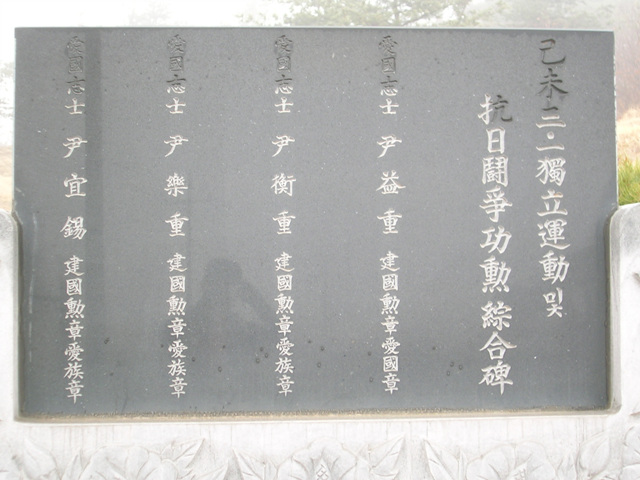 己未三·一獨立運動 및
抗日鬪爭功勲綜合碑
愛國志士 尹益重 建國勲章愛國章
愛國志士 尹衡重 建國勲章愛族章
愛國志士 尹樂重 建國勲章愛族章
愛國志士 尹宜錫 建國勲章愛族章